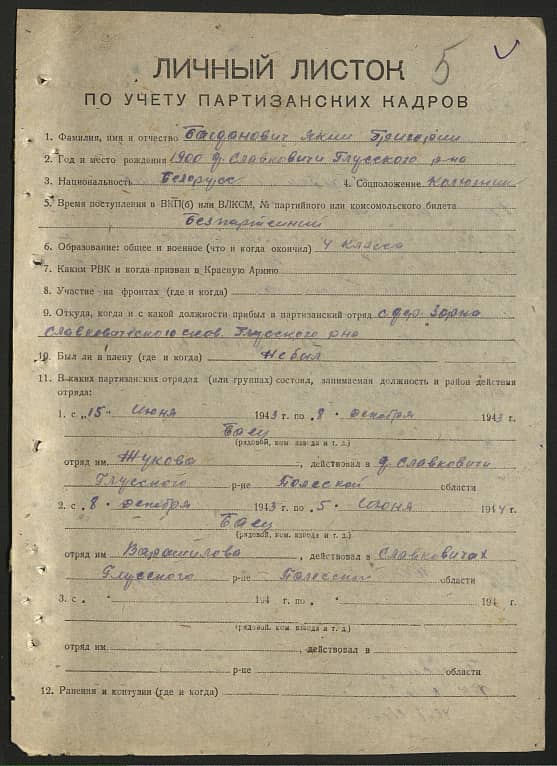 5
ЛИЧНЫЙ ЛИСТОК
ПО УЧЕТУ ПАРТИЗАНСКИХ КАДРОВ
1. Фамилия, имя и отчество Багданович Яким Григории
2. Год и место рождения 1900 д. Славковичи Глусского р-на
3. Национальность Белорусс 4. Соцположение
5. Время поступления в ВКП(б) или ВЛКСМ, № партийного или комсомольского билета
Безпартейний
6. Образование: общее и военное (что и когда окончил) 4 класса
7. Каким РВК и когда призван в Красную Армию
8. Участие на фронтах (где и когда)
9. Откуда, когда и с какой должности прибыл в партизанский отряд с дер. Зорка
Славковического с/сов. Глусского р-на
10. Был ли в плену (где и когда) Не был
11. В каких партизанских отрядах (или группах) состоял, занимаемая должность и район действия
отряда:
1. с „15" Июня 1943 г. по „8" декабря 1943 г.
Баец
(рядовой, ком. взвода и т. д.)
отряд им. Жукова, действовал в д. Славковичи
Глусского р-не Полесской области
2. с „8" декабря 1943 г. по „5" Июня 1944 г.
Баец
(рядовой, ком. взвода и т. д.)
отряд им Варашилова, действовал в Славковичах
Глусского р-не Полесской области
3. с „ " 194 г. по „ " 194 г.
(рядовой, ком. взвода и т. д.)
отряд им. , действовал в
р-не области
12. Ранения и контузии (где и когда)